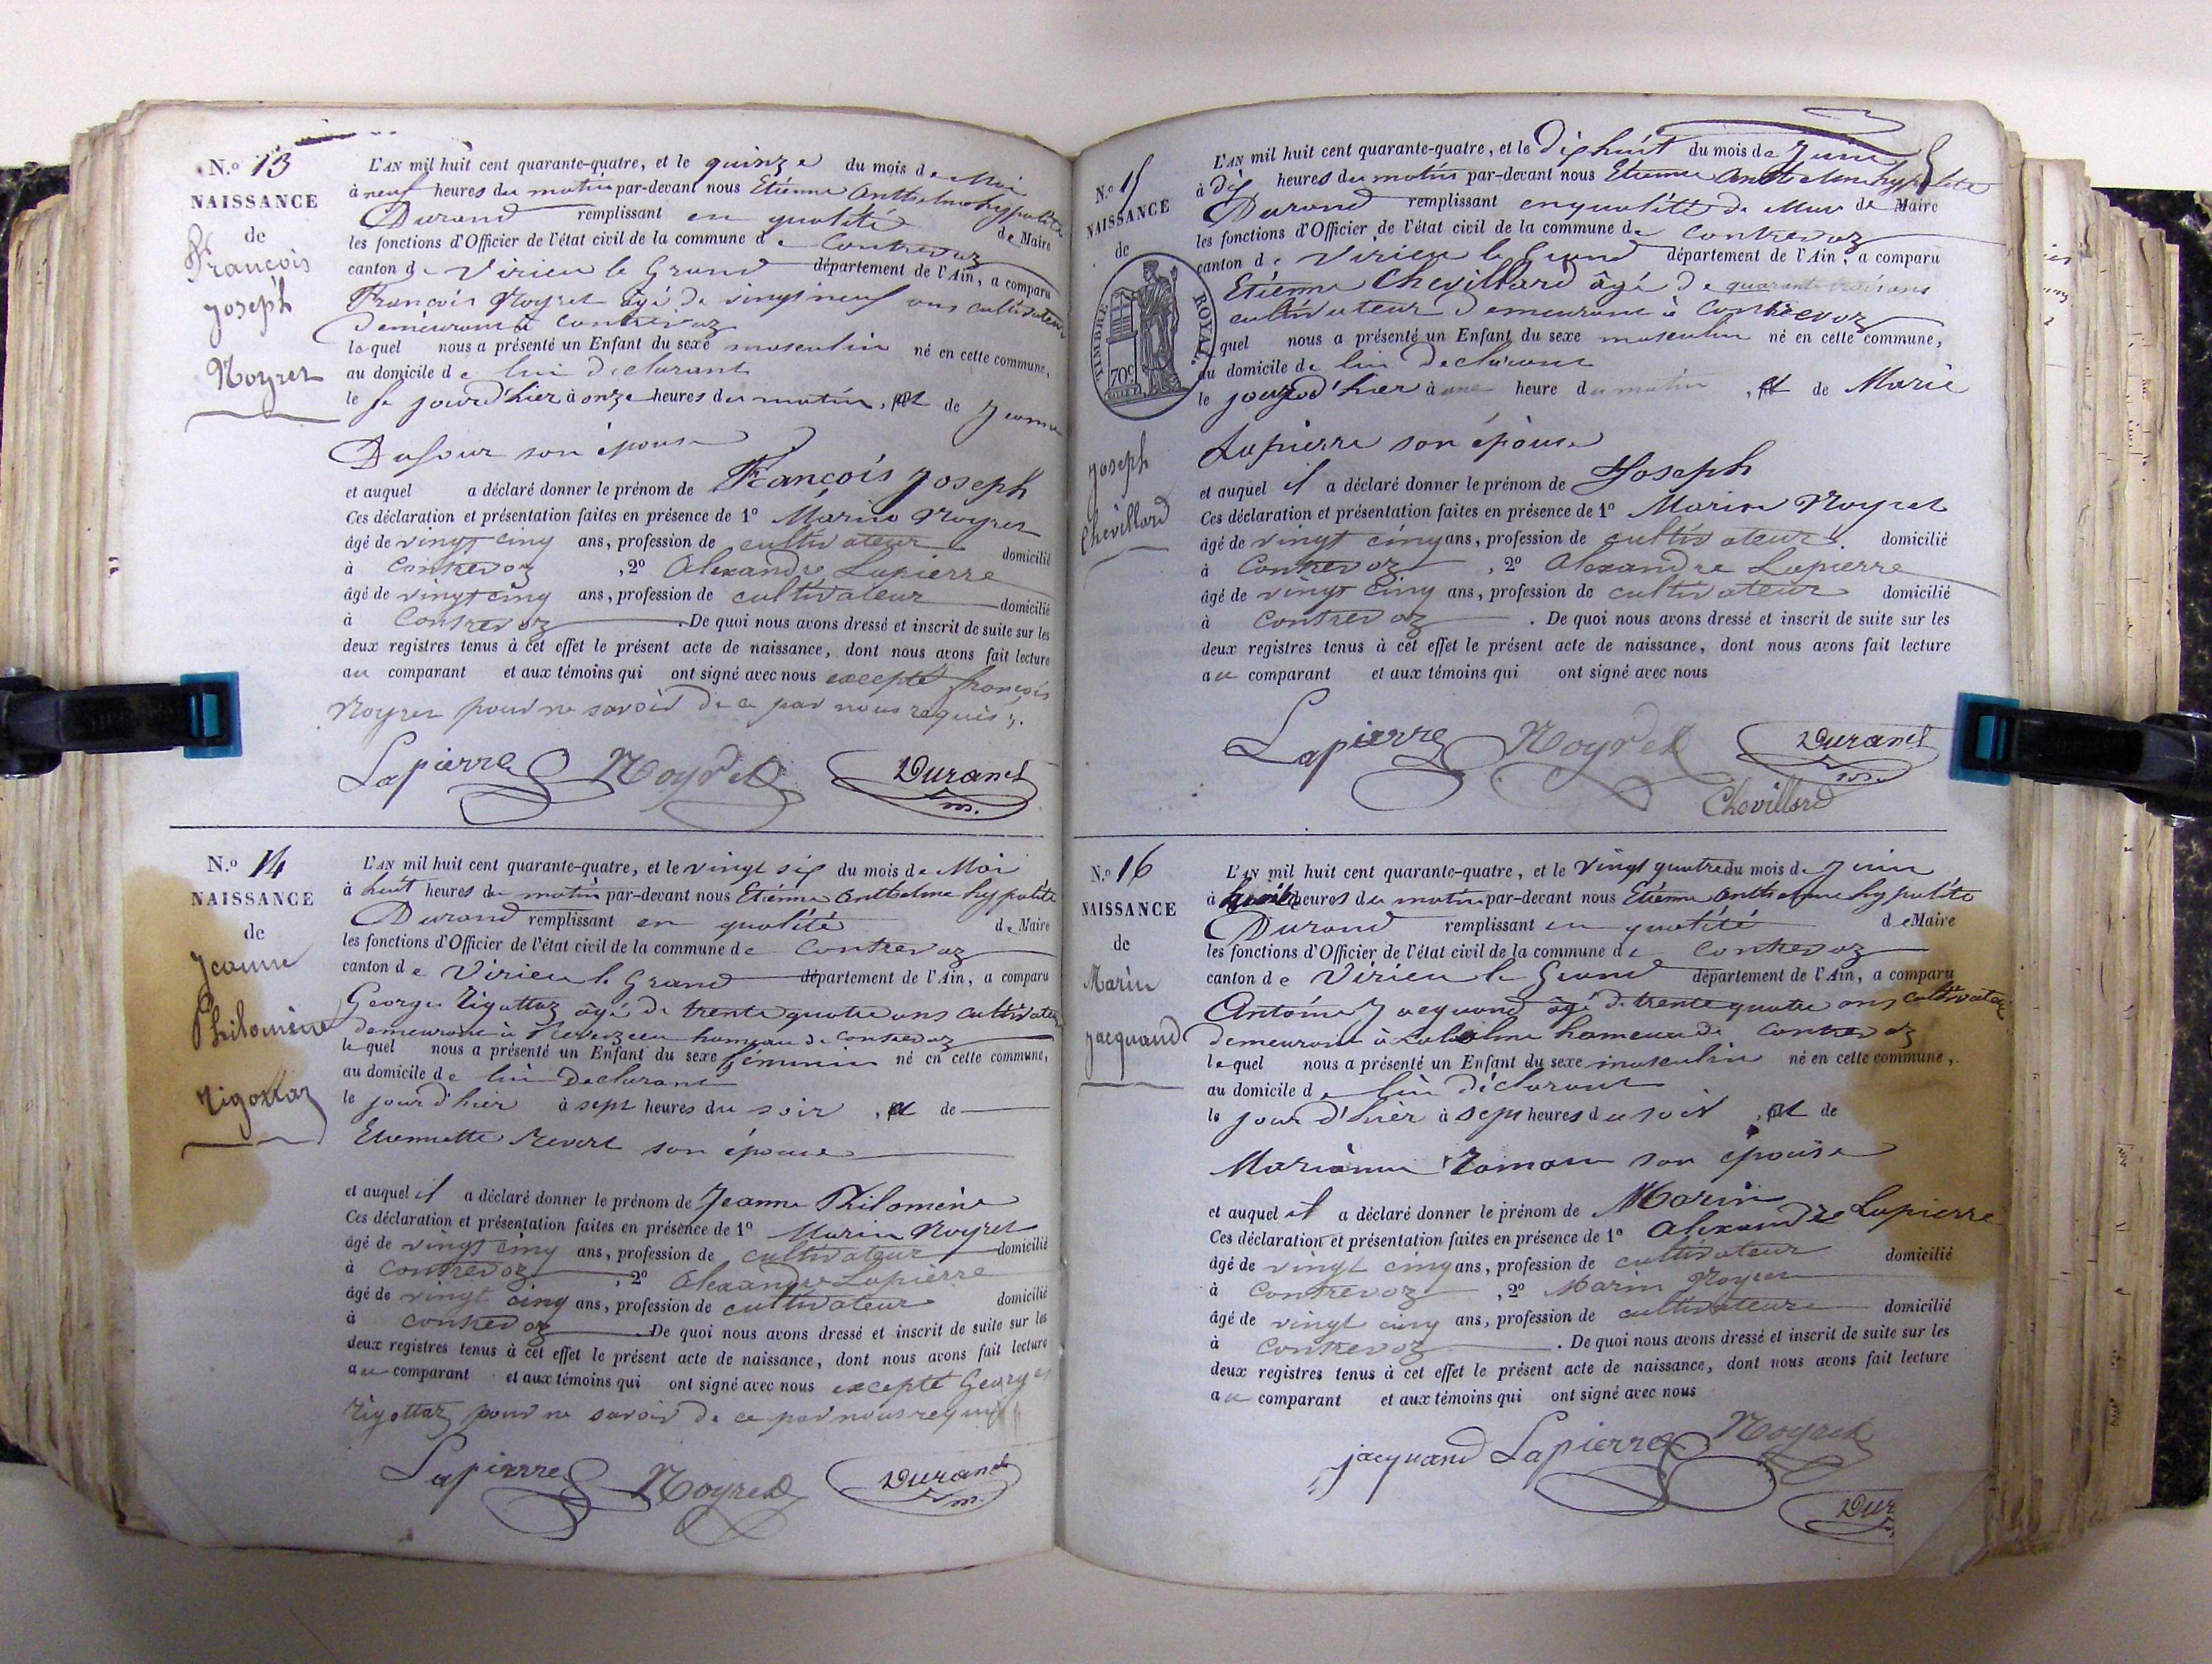 N.º 13
NAISSANCE
de
François
joseph
Noyret
L'AN mil huit cent quarante-quatre, et le quinze du mois de Mai
à neuf heures du matin par-devant nous Etienne Anthelme hypolite
Durand remplissant en qualité de Maire
les fonctions d'Officier de l'état civil de la commune de Contrevoz
canton de Virieu le Grand département de l'Ain, a comparu
François Noyret âgé de vingt neuf ans cultivateur
demeurant à Contrevoz
lequel nous a présenté un Enfant du sexe masculin né en cette commune,
au domicile de lui déclarant
le jourd'hier à onze heures du matin, et de Jeanne
Dufour son épouse
et auquel a déclaré donner le prénom de François Joseph
Ces déclaration et présentation faites en présence de 1º Marin Noyret
âgé de vingt cinq ans, profession de cultivateur domicilié
à Contrevoz, 2º Alexandre Lapierre
âgé de vingt cinq ans, profession de cultivateur domicilié
à Contrevoz. De quoi nous avons dressé et inscrit de suite sur les
deux registres tenus à cet effet le présent acte de naissance, dont nous avons fait lecture
au comparant et aux témoins qui ont signé avec nous excepté françois
Noyret pour ne savoir de ce par nous requis.
Lapierre Noyret Durand
m.
N.º 14
NAISSANCE
de
Jeanne
Philomène
Rigottaz
L'AN mil huit cent quarante-quatre, et le vingt six du mois de Mai
à huit heures du matin par-devant nous Etienne Anthelme hypolite
Durand remplissant en qualité de Maire
les fonctions d'Officier de l'état civil de la commune de Contrevoz
canton de Virieu le Grand département de l'Ain, a comparu
George Rigottaz âgé de trente quatre ans cultivateur
demeurant à hameau de Contrevoz
lequel nous a présenté un Enfant du sexe féminin né en cette commune,
au domicile de lui Déclarant
le jourd'hier à sept heures du soir, et de
Etiennette Revert son épouse
et auquel il a déclaré donner le prénom de Jeanne Philomène
Ces déclaration et présentation faites en présence de 1º Marin Noyret
âgé de vingt cinq ans, profession de cultivateur domicilié
à Contrevoz, 2º Alexandre Lapierre
âgé de vingt cinq ans, profession de cultivateur domicilié
à Contrevoz. De quoi nous avons dressé et inscrit de suite sur les
deux registres tenus à cet effet le présent acte de naissance, dont nous avons fait lecture
au comparant et aux témoins qui ont signé avec nous excepté Georges
Rigottaz pour ne savoir de ce par nous requis
Lapierre Noyret Durand
m.
N.º 15
NAISSANCE
de
TIMBRE ROYAL.
70c
Joseph
Chevillard
L'AN mil huit cent quarante-quatre, et le Dix huit du mois de Juin
à dix heures du matin par-devant nous Etienne Anthelme hypolite
Durand remplissant en qualité de Maire
les fonctions d'Officier de l'état civil de la commune de Contrevoz
canton de Virieu le Grand département de l'Ain, a comparu
Etienne Chevillard âgé de quarante trois ans
cultivateur demeurant à Contrevoz
quel nous a présenté un Enfant du sexe masculin né en cette commune,
au domicile de lui déclarant
le jourd'hier à une heure du matin, et de Marie
Lapierre son épouse
et auquel il a déclaré donner le prénom de Joseph
Ces déclaration et présentation faites en présence de 1º Marin Noyret
âgé de vingt cinq ans, profession de cultivateur domicilié
à Contrevoz, 2º Alexandre Lapierre
âgé de vingt cinq ans, profession de cultivateur domicilié
à Contrevoz. De quoi nous avons dressé et inscrit de suite sur les
deux registres tenus à cet effet le présent acte de naissance, dont nous avons fait lecture
au comparant et aux témoins qui ont signé avec nous
Lapierre Noyret Durand
Chevillard
N.º 16
NAISSANCE
de
Marin
Jacquand
L'AN mil huit cent quarante-quatre, et le vingt quatre du mois de Juin
à heures du matin par-devant nous Etienne Anthelme hypolite
Durand remplissant en qualité de Maire
les fonctions d'Officier de l'état civil de la commune de Contrevoz
canton de Virieu le Grand département de l'Ain, a comparu
Antoine Jacquand âgé de trente quatre ans cultivateur
demeurant à hameau de Contrevoz
lequel nous a présenté un Enfant du sexe masculin né en cette commune,
au domicile de lui déclarant
le jourd'hier à sept heures du soir, et de
Marianne son épouse
et auquel il a déclaré donner le prénom de Marin
Ces déclaration et présentation faites en présence de 1º Alexandre Lapierre
âgé de vingt cinq ans, profession de cultivateur domicilié
à Contrevoz, 2º Marin Noyret
âgé de vingt cinq ans, profession de cultivateur domicilié
à Contrevoz. De quoi nous avons dressé et inscrit de suite sur les
deux registres tenus à cet effet le présent acte de naissance, dont nous avons fait lecture
au comparant et aux témoins qui ont signé avec nous
jacquand Lapierre Noyret
Dur